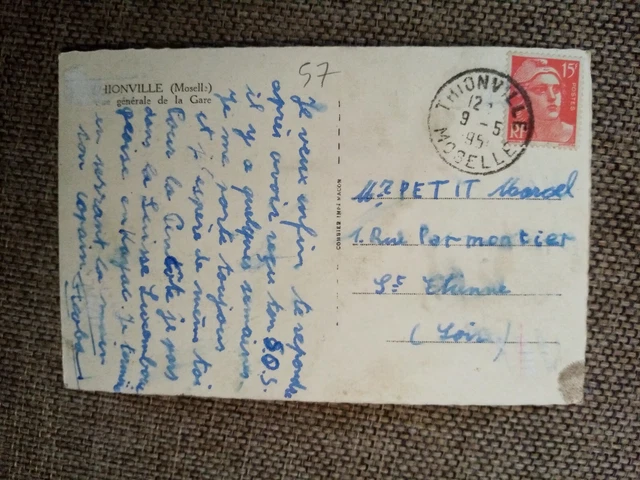 HIONVILLE (Mosell:)
générale de la Gare
57
Je veux enfin te repondre
après avoir reçu ton SOS.
il y a quelques semaines
Je me porte toujours
et j'espère de même toi
Pour la je pars
dans la Luxembour
en serrant la main
ton copain
COMBIER IMP. MACON
THIONVILLE
12
9 - 5
195
MOSELLE
15F
POSTES
RF
Mr PETIT Marcel
1. Rue Parmentier
St Etienne
(Loire)